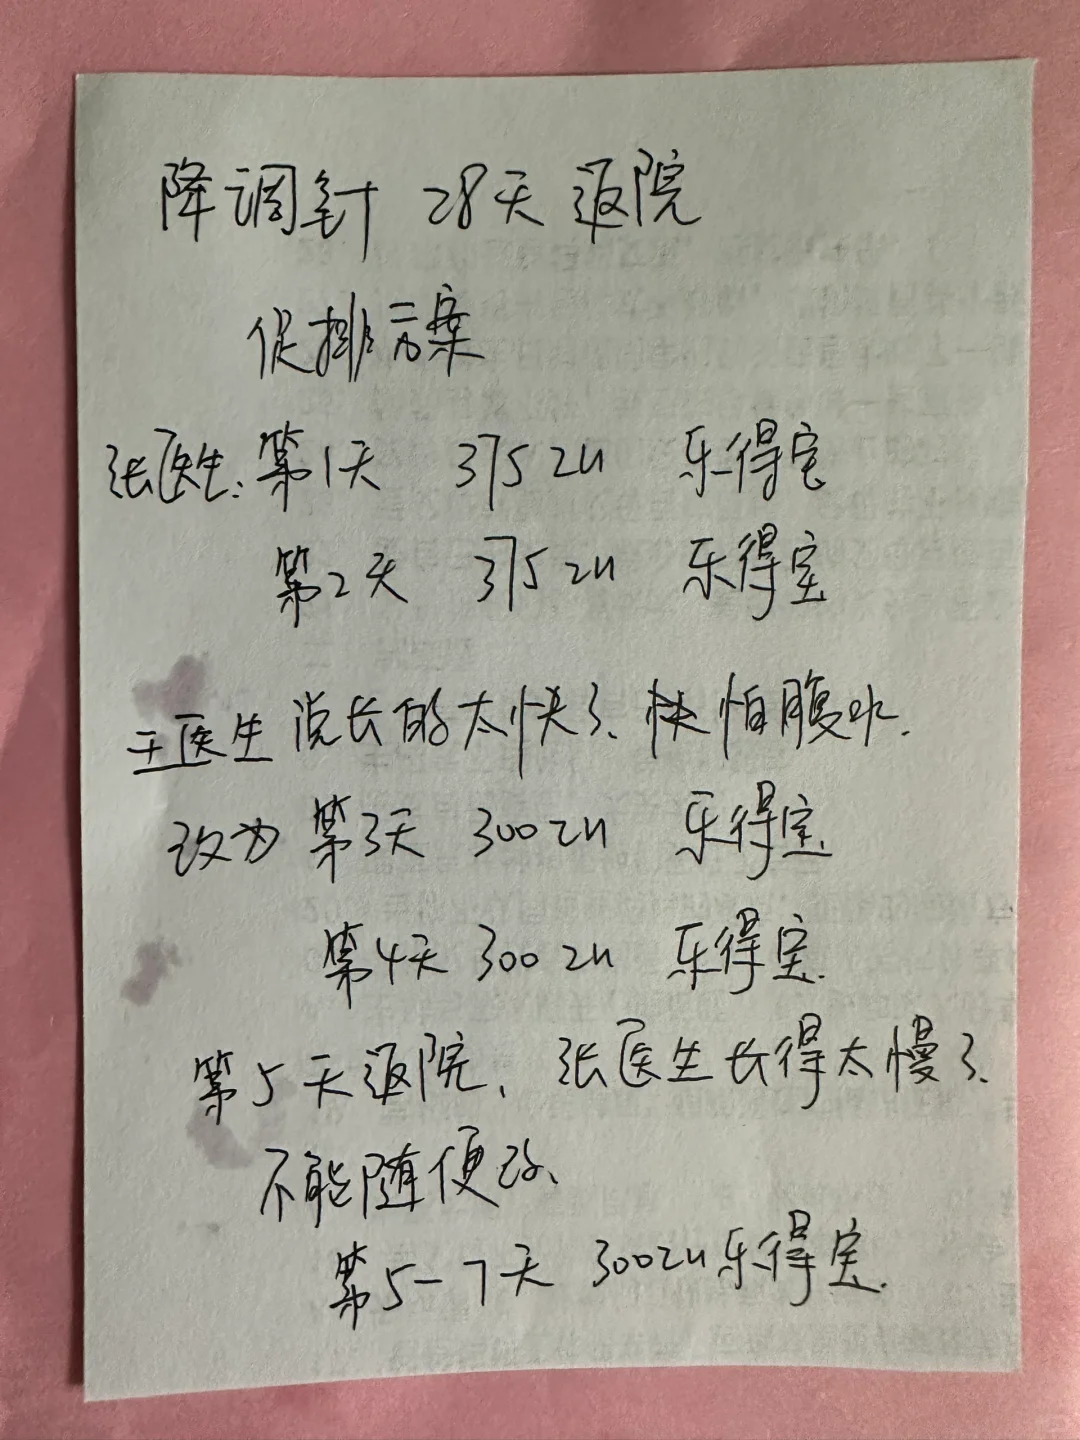 降调针 28天返院
促排方案
张医生:第1天 375 IU 乐得宝
第2天 375 IU 乐得宝
王医生说长的太快了、快怕腹水.
改为 第3天 300 IU 乐得宝
第4天 300 IU 乐得宝.
第5天返院、张医生长得太慢了、
不能随便改、
第5-7天 300IU乐得宝.